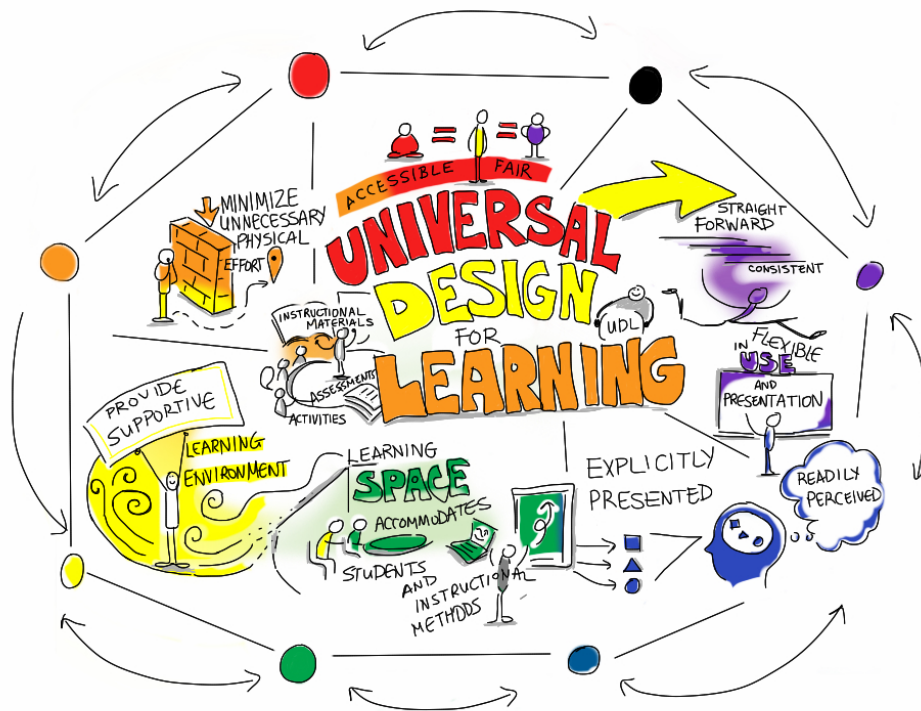 ACCESSIBLE FAIR
UNIVERSAL
DESIGN
FOR
LEARNING
UDL
MINIMIZE
UNNECESSARY
PHYSICAL
EFFORT
INSTRUCTIONAL
MATERIALS
ASSESSMENTS
ACTIVITIES
STRAIGHT
FORWARD
CONSISTENT
FLEXIBLE
IN USE
AND
PRESENTATION
PROVIDE
SUPPORTIVE
LEARNING
ENVIRONMENT
LEARNING
SPACE
ACCOMMODATES
STUDENTS
AND
INSTRUCTIONAL
METHODS
EXPLICITLY
PRESENTED
READILY
PERCEIVED